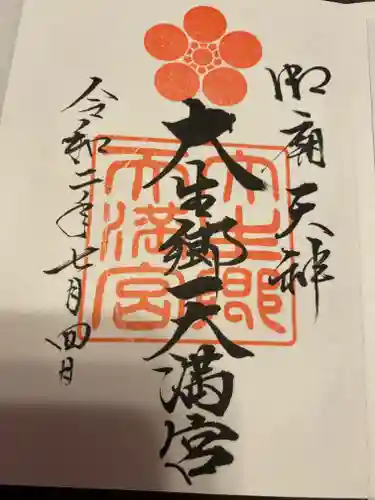 御廟天神
大生郷天満宮
令和二年七月四日
大生郷
天満宮